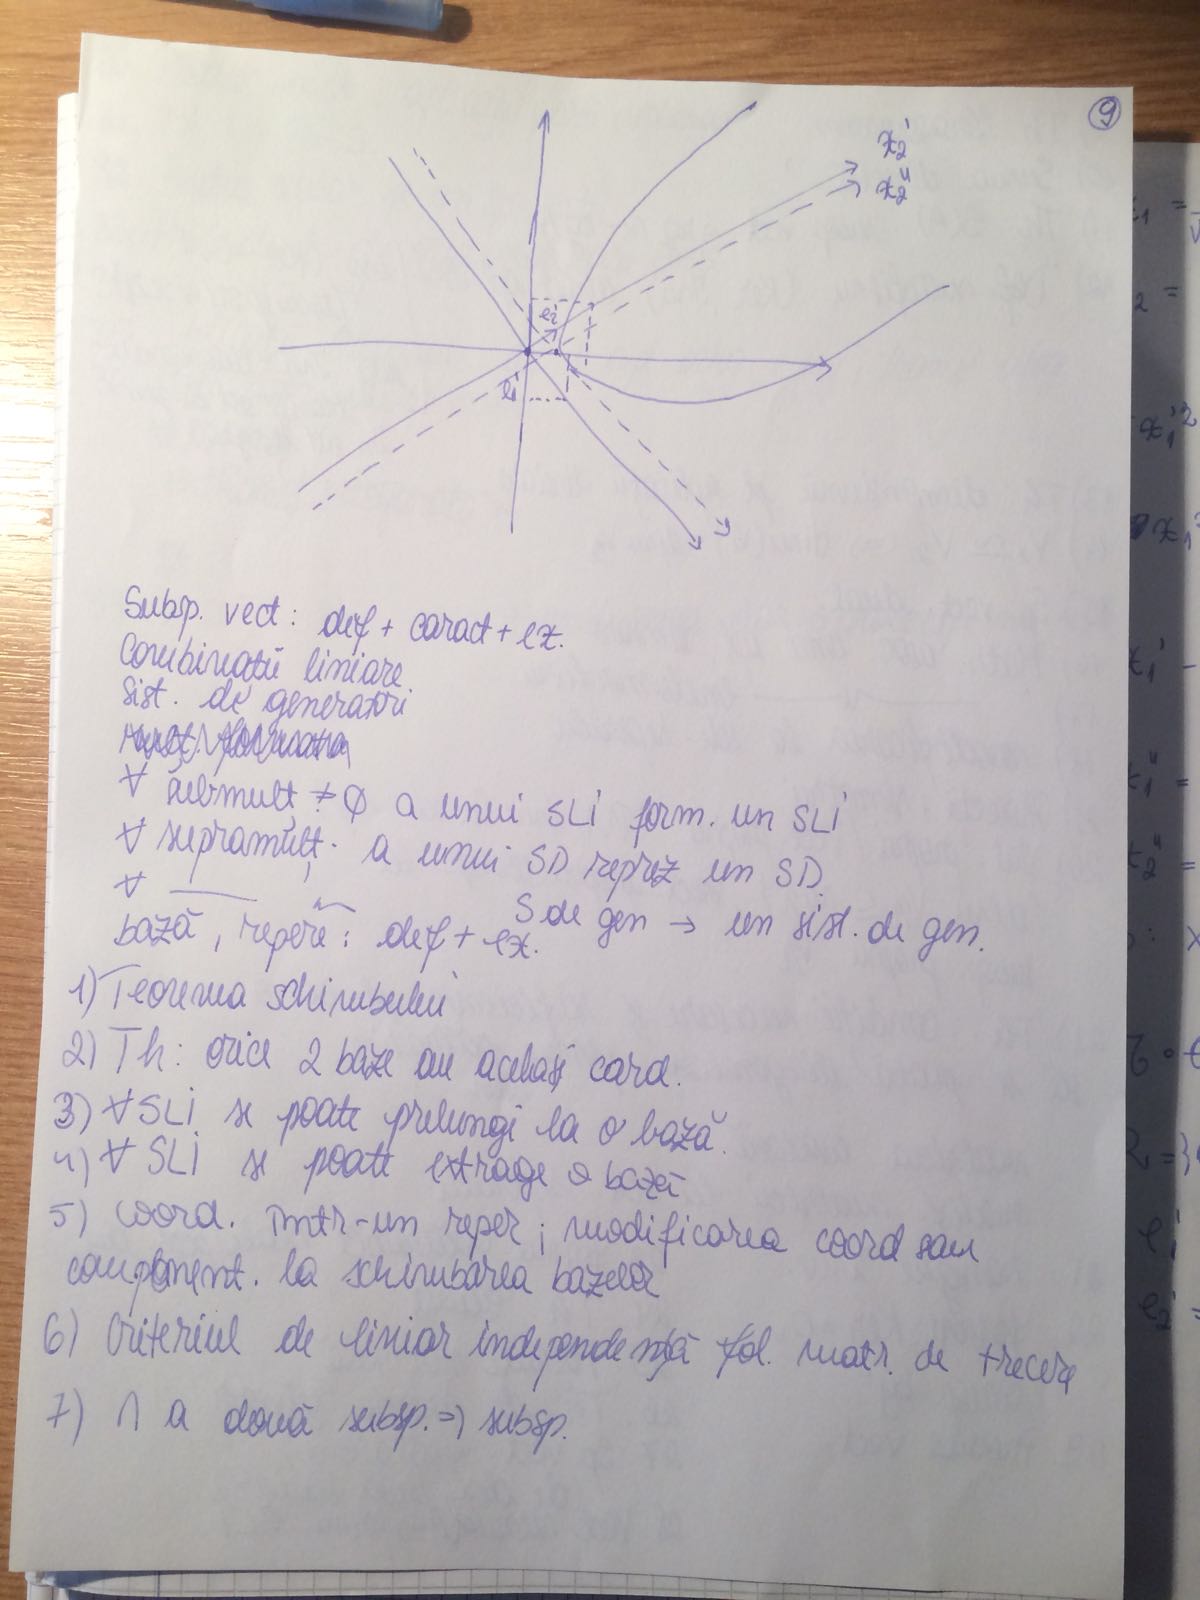 9
x₂'
x₂''
e₂'
e₁'
Subsp. vect: def + caract + ex.
Combinații liniare
Sist. de generatori
∀ submulț ≠ ∅ a unui SLI form. un SLI
∀ supramulț. a unui SD reprez un SD.
∀ S de gen → un sist. de gen.
bază, repere: def + ex.
1) Teorema schimbului
2) Th: orice 2 baze au același card.
3) ∀ SLI se poate prelungi la o bază.
4) ∀ SLI se poate extrage o bază
5) Coord. într-un reper; modificarea coord sau
component. la schimbarea bazelor
6) Criteriul de liniar independență fol. matr. de trecere
7) ∩ a două subsp. => subsp.